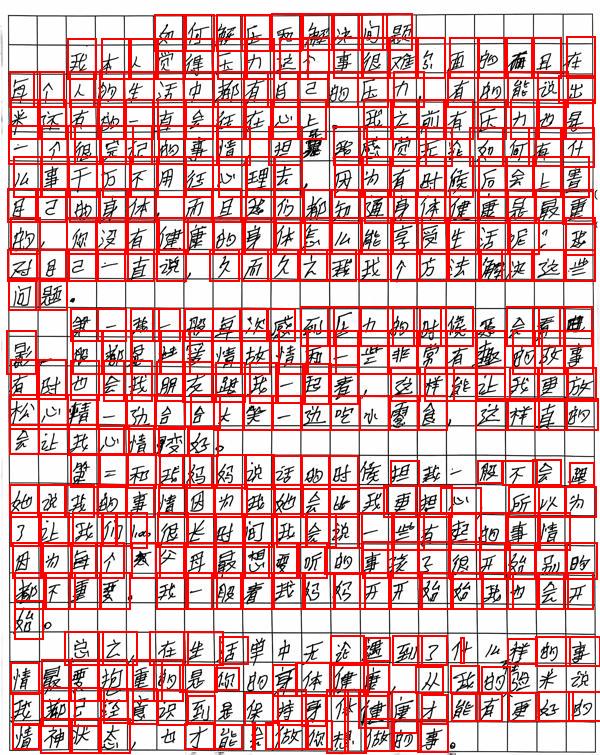 如何解压和解决问题
我本人觉得压力这个事很难多面的而且在
每个人的生活中都有自己的压力，有的能说出
来还有的一直会在心上。我之前有压力也是
一个很忘记的事情，但 感觉无论如何有什
么事千万不用往心理去，因为有时候后会上害
自己的身体，而且我们都知道身体健康是最重
的，你没有健康的身体怎么能享受生活呢？我
对自己一直说，久而久之我找个方法解决这些
问题。
第一我一般每次感到压力的时候愿会看电
影，一般都是些爱情故情和一些非常有趣的故事
有时也会找朋友跟我一起看，这样能让我更放
松心情一边合合大笑一边吃水零食，这样真的
会让我心情胶好。
第二和我妈妈说话的时候担我一般不会跟
她说我的事情因为我她会比我更担心，所以为
了让我们 很长时间我会说一些有趣的事情
因为每个 父母最想要听的事孩子很开始别的
都不重要。我一般看我妈妈开开始始我也会开
始。
总之，在生活单中无论遇到了什么样的事
情最要抱重的是你的身体健康，从我的 来说
我都已经意识到是保持身体健康才能有更好的
情神状态，也才能会做你想做的事。